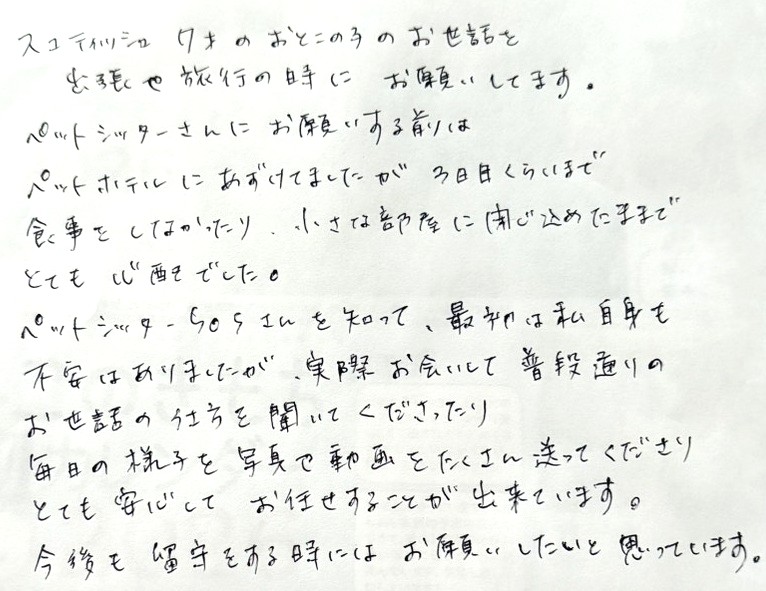 スコティッシュ 7才のおとこの子のお世話を
出張や旅行の時に お願いしてます。
ペットシッターさんに お願いする前は
ペットホテルにあずけてましたが 3日目くらいまで
食事をしなかったり、小さな部屋に閉じ込めたままで
とても 心配でした。
ペットシッターSOSさんを知って、最初は私自身も
不安はありましたが、実際お会いして 普段通りの
お世話の仕方を聞いてくださったり
毎日の様子を写真や動画をたくさん送ってくださり
とても安心して お任せすることが出来ています。
今後も 留守をする時には お願いしたいと思っています。